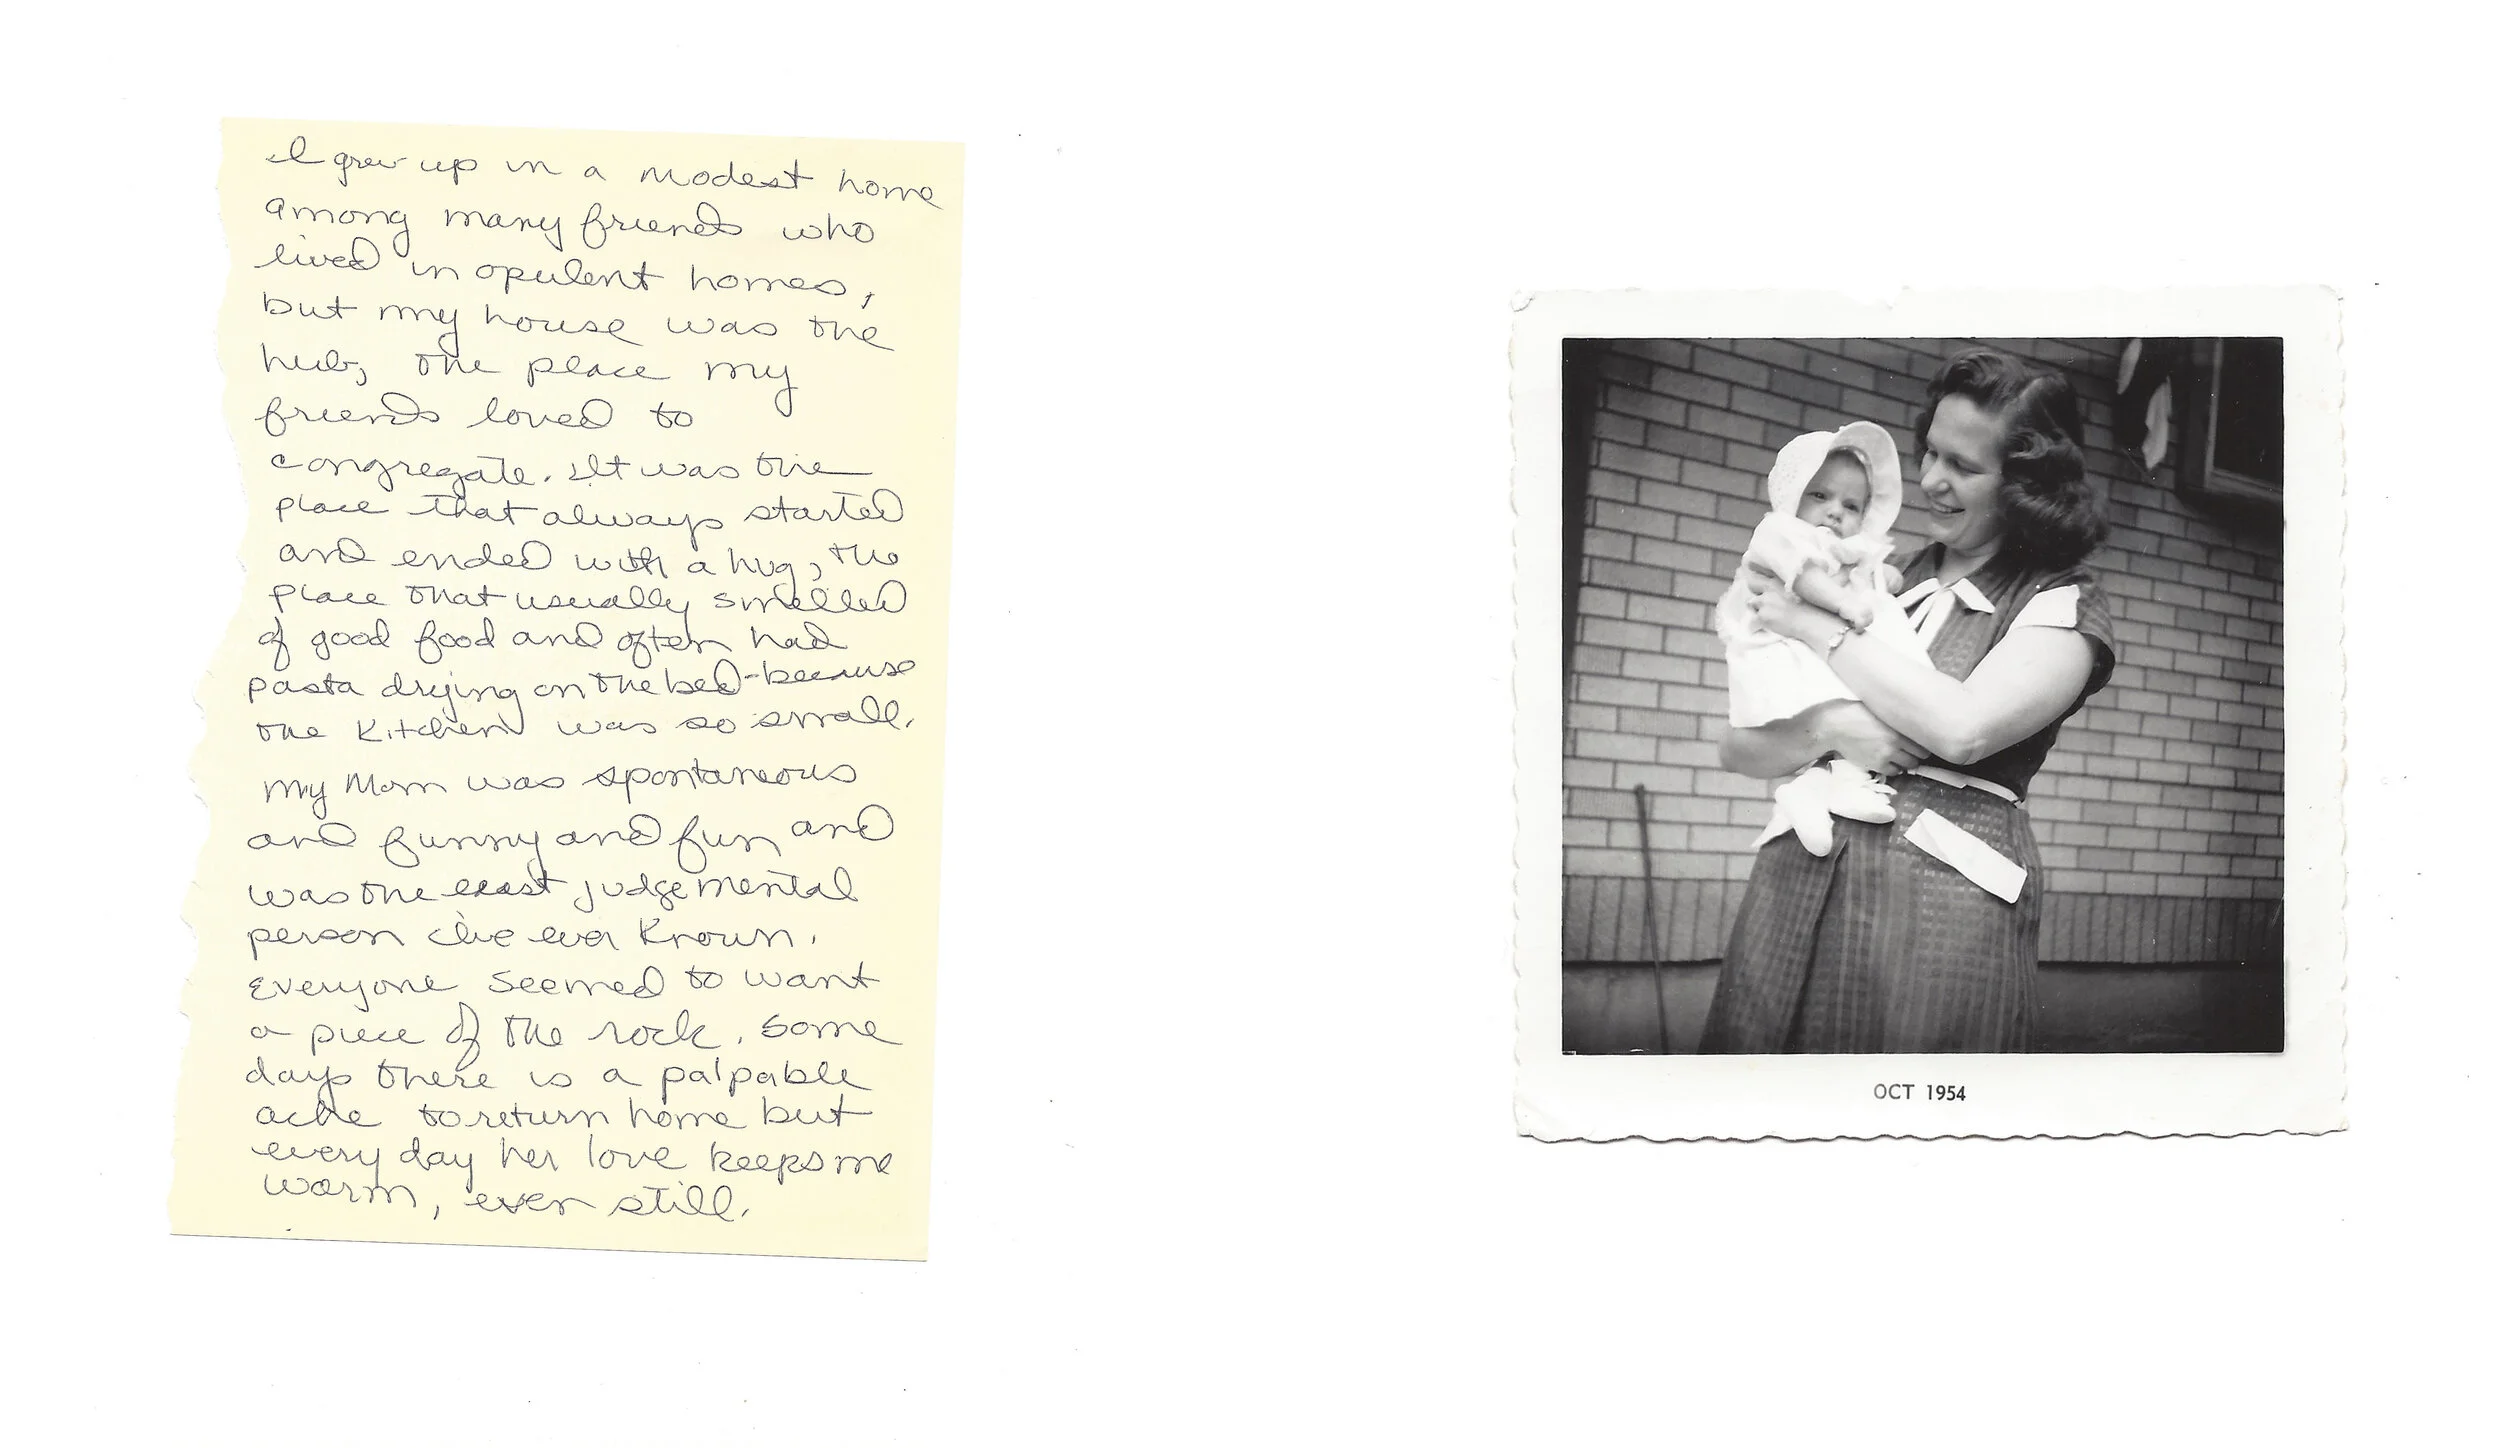 I grew up in a modest home
among many friends who
lived in opulent homes,
but my house was the
hub, the place my
friends loved to
congregate. It was the
place that always started
and ended with a hug, the
place that usually smelled
of good food and often had
pasta drying on the bed - because
the kitchen was so small.
My Mom was spontaneous
and funny and fun and
was the least judgemental
person I've ever known.
Everyone seemed to want
a piece of the rock. Some
days there is a palpable
ache to return home but
every day her love keeps me
warm, even still.
OCT 1954